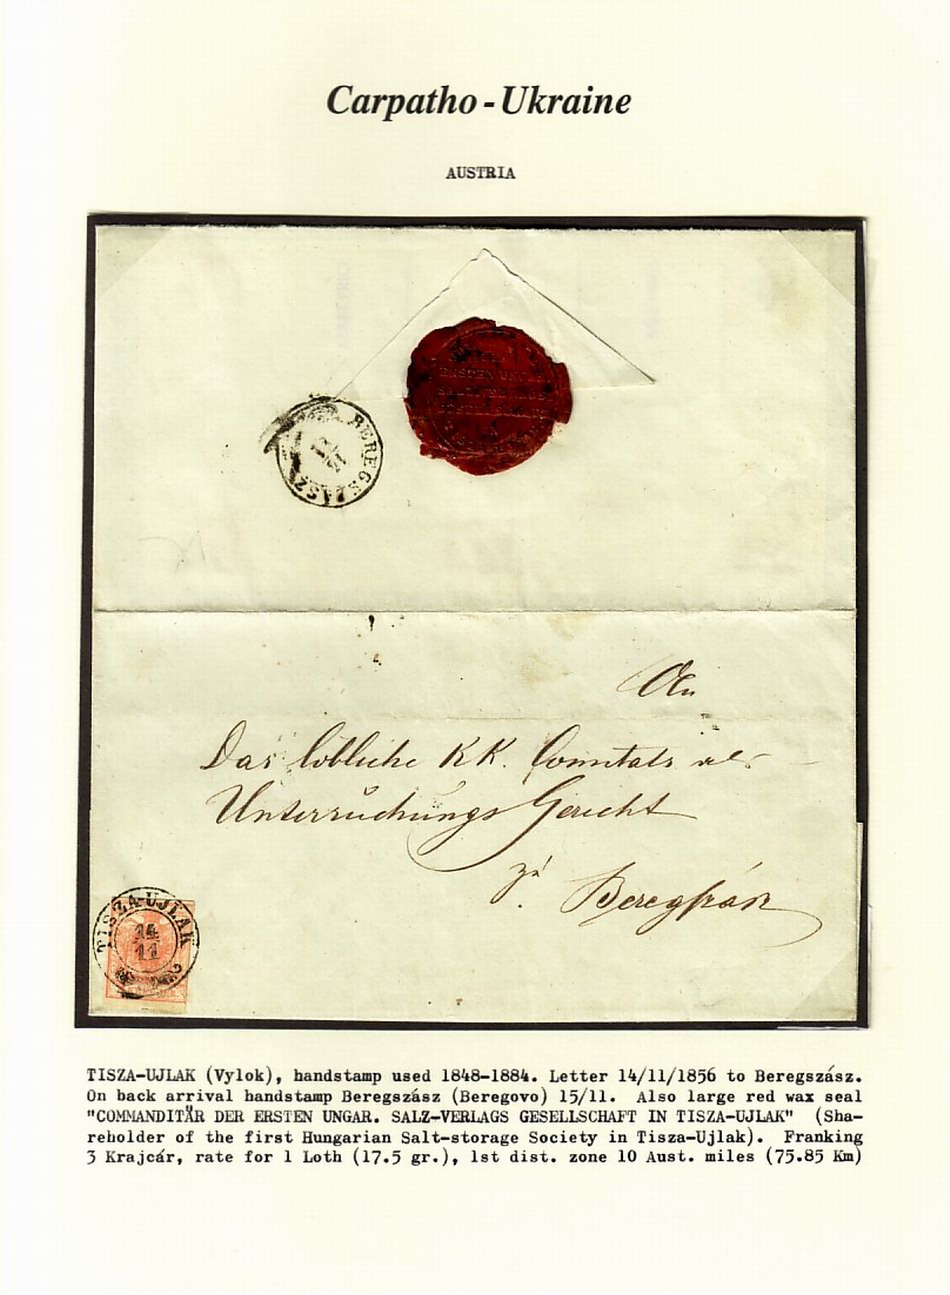 Carpatho - Ukraine
AUSTRIA
ERSTEN UNG
BEREGSZÁSZ
An
Das löbliche KK. Comitats als
Untersuchungs Gericht
zu
Beregszász
TISZA-UJLAK
14
11
TISZA-UJLAK (Vylok), handstamp used 1848-1884. Letter 14/11/1856 to Beregszász.
On back arrival handstamp Beregszász (Beregovo) 15/11. Also large red wax seal
"COMMANDITÄR DER ERSTEN UNGAR. SALZ-VERLAGS GESELLSCHAFT IN TISZA-UJLAK" (Sha-
reholder of the first Hungarian Salt-storage Society in Tisza-Ujlak). Franking
3 Krajcár, rate for 1 Loth (17.5 gr.), 1st dist. zone 10 Aust. miles (75.85 Km)